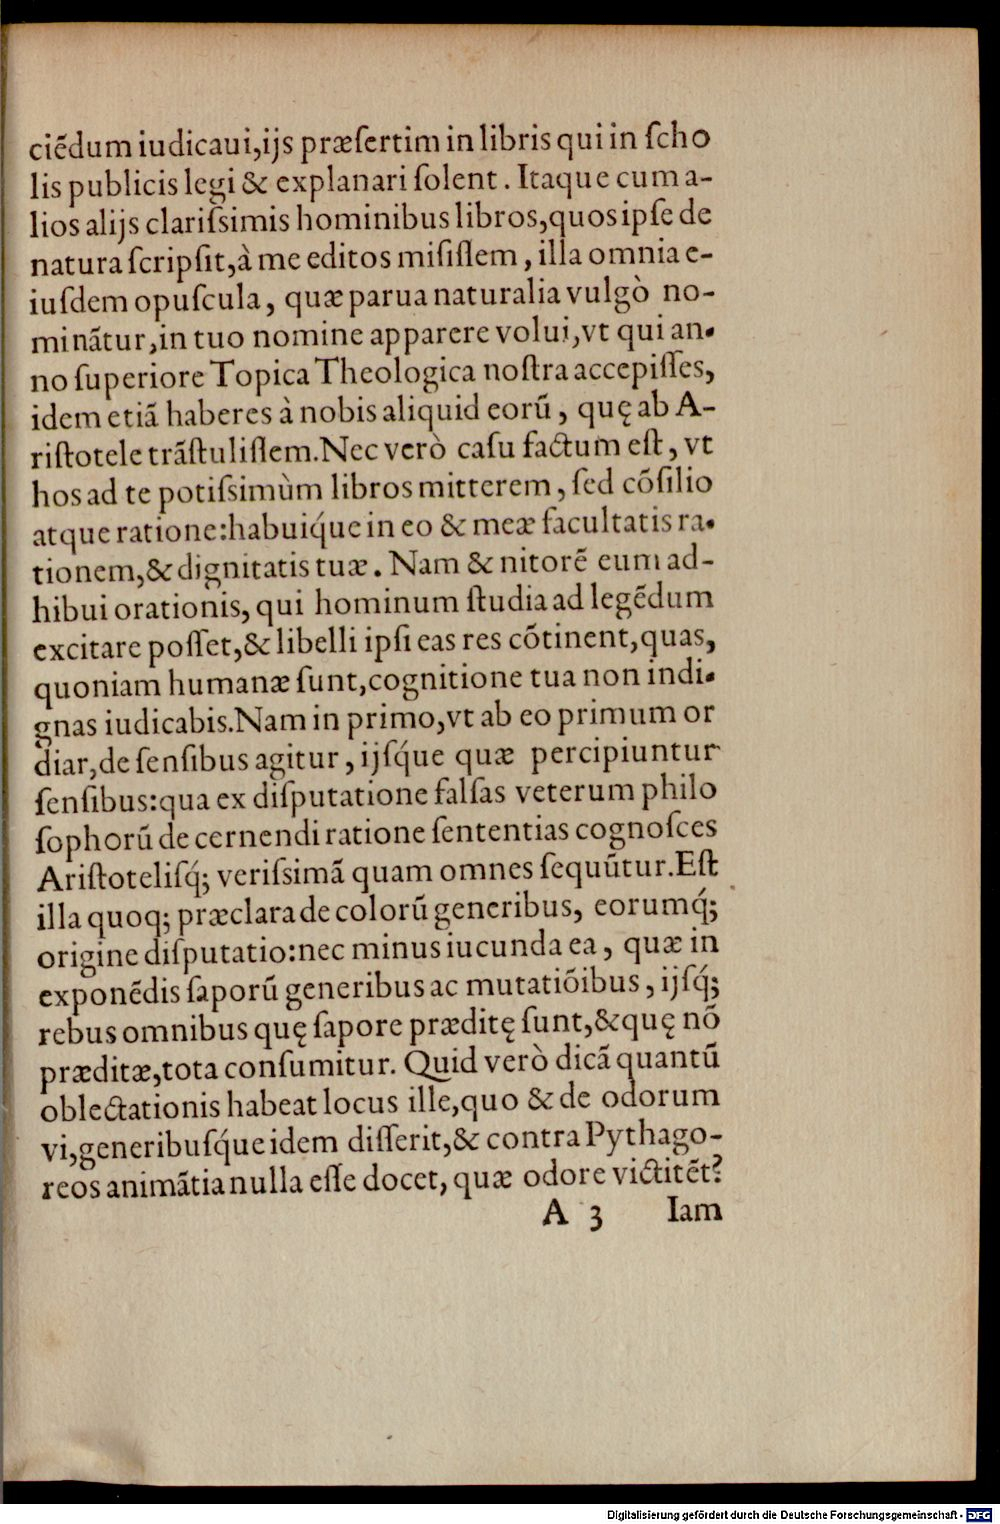 ciēdum iudicaui,ijs præſertim in libris qui in ſcho
lis publicis legi & explanari ſolent. Itaque cum a-
lios alijs clariſsimis hominibus libros,quos ipſe de
natura ſcripſit,à me editos miſiſſem, illa omnia e-
iuſdem opuſcula, quæ parua naturalia vulgò no-
minātur,in tuo nomine apparere volui,vt qui an-
no ſuperiore Topica Theologica noſtra accepiſſes,
idem etiā haberes à nobis aliquid eorū, quę ab A-
riſtotele trāſtuliſſem.Nec verò caſu factum eſt, vt
hos ad te potiſsimùm libros mitterem, ſed cōſilio
atque ratione:habuiq́ue in eo & meæ facultatis ra-
tionem,& dignitatis tuæ. Nam & nitorē eum ad-
hibui orationis, qui hominum ſtudia ad legēdum
excitare poſſet,& libelli ipſi eas res cōtinent,quas,
quoniam humanæ ſunt,cognitione tua non indi-
gnas iudicabis.Nam in primo,vt ab eo primum or
diar,de ſenſibus agitur, ijſq́ue quæ percipiuntur
ſenſibus:qua ex diſputatione falſas veterum philo
ſophorū de cernendi ratione ſententias cognoſces
Ariſtoteliſq́; veriſsimā quam omnes ſequūtur.Eſt
illa quoq; præclara de colorū generibus, eorumq́;
origine diſputatio:nec minus iucunda ea, quæ in
exponēdis ſaporū generibus ac mutatiōibus, ijſq́;
rebus omnibus quę ſapore prædítę ſunt,& quę nō
præditæ,tota conſumitur. Quid verò dicā quantū
oblectationis habeat locus ille,quo & de odorum
vi,generibuſq́ue idem diſſerit,& contra Pythago-
reos animātia nulla eſſe docet, quæ odore victitēt?
A 3 Iam
Digitalisierung gefördert durch die Deutsche Forschungsgemeinschaft - DFG